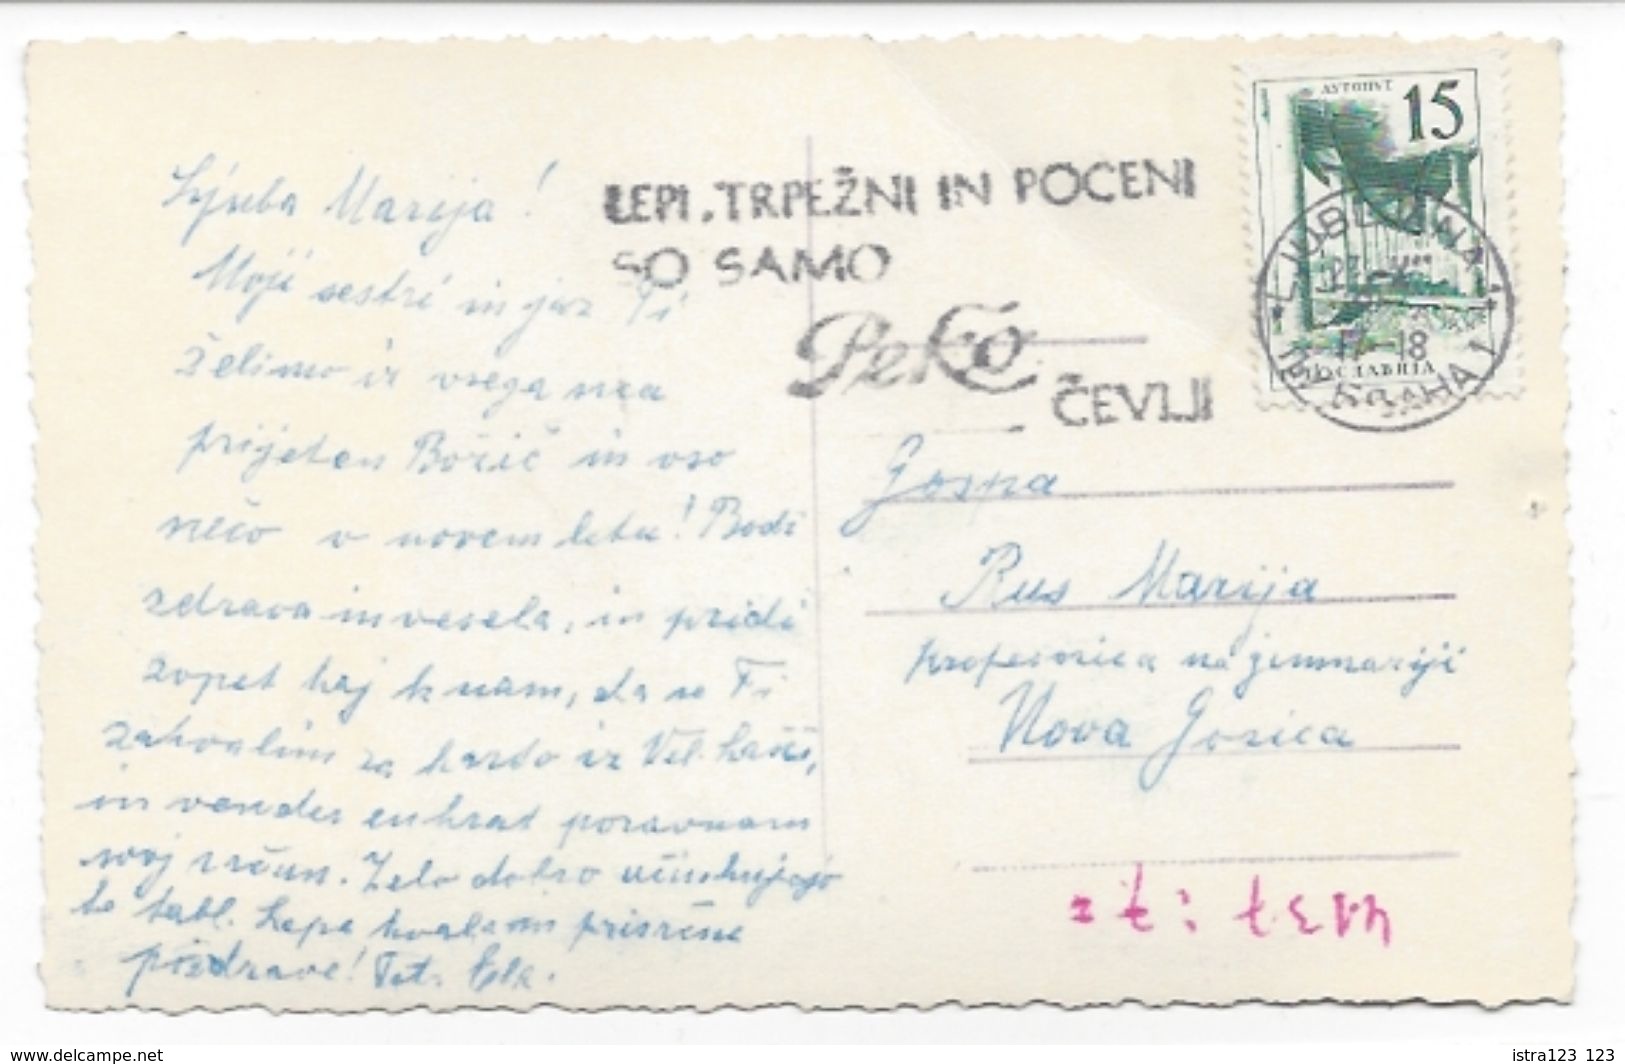 Ljuba Marija!
Moji sestri in jaz Ti
želimo iz vsega srca
prijeten Božič in vso
srečo v novem letu! Bodi
zdrava in vesela, in pridi
zopet kaj k nam, da se Ti
zahvalim za karto iz Vel.
in vendar enkrat poravnam
svoj račun. Zelo dobro učinkujejo
te tabl. Lepa hvala in prisrčne
pozdrave! Tet. Ela.
LEPI, TRPEŽNI IN POCENI
SO SAMO
Peko
ČEVLJI
АУТОПУТ
15
ЈУГОСЛАВИЈА
LJUBLJANA 1
17-18
Gospa
Rus Marija
profesorica na gimnaziji
Nova Gorica
www.delcampe.net
istra123 123